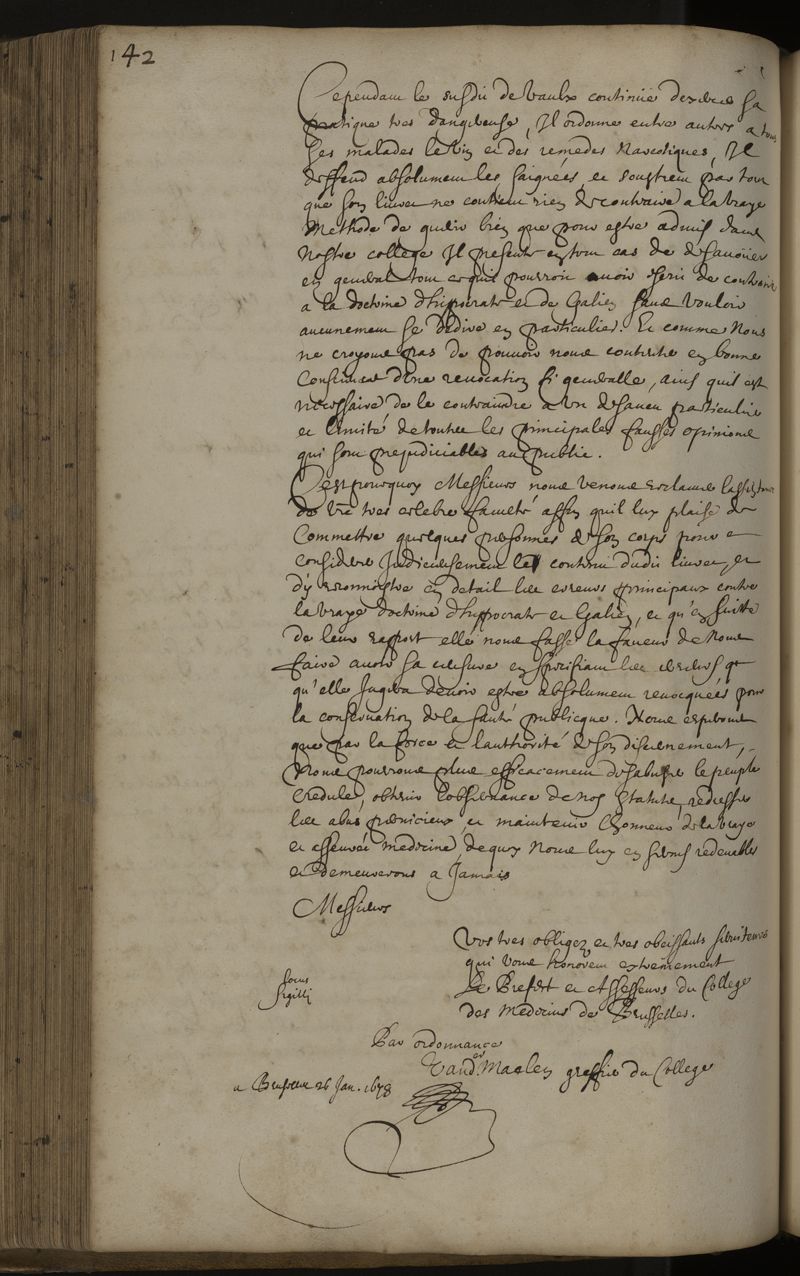 142
Cependant le susdit de Vaulx continue dexercer sa
pratique tres dangereuse, Il ordonne entre autres a tous
ses malades le vin et des remedes Narcotiques, Il
deffend absolument les saignées, et soustient par tout
que son livret ne contient rien de contraire a la vraye
Methode de guerir bien que pour estre admis dans
Nostre college Il presente en tout cas de desavoüer
en general tout ce quil pourroit avoir escrit de contraire
a la doctrine d'hippocrate et de Galien sans vouloir
aucunement se dedire en particulier. Et comme Nous
ne croyons pas de pouvoir nous contenter en bonne
Conscience d'une revocation si generalle, ains quil est
necessaire de le contraindre a un desaveu particulier
et limité de toutes les principales fausses opinions
qui sont prejudiciables au publicq.
C'est pourquoy Messieurs nous venons reclamer lassistance
de vre tres celebre faculté affin quil luy plaise de
Commettre quelques personnes de son corps pour
considerer Judicieusement le contenu dudit livret, et
d'y reconnoistre en detail les erreurs principaux contre
la vraye doctrine d'hippocrate et Galien, et qu'en suitte
de leur rapport elle nous fasse la faveur de Nous
faire avoir sa censure en specifiant les erreurs
qu'elle Jugera devoir estre absolument revocquées pour
la conservation de la santé publicque. Nous esperons
que par la force et l'authorité de son discernement,
Nous pourrons plus efficacement desabuser le peuple
credule, obtenir l'observance de nos Statuts, redresser
les abus pernicieux, et maintenir l'honneur de la vraye
et asseurée medecine, de quoy Nous luy en serons redevables
et demeurerons a Jamais
Messieurs
Vos tres obligez et tres obeissants serviteurs
qui vous honorent extremement
Les Prefect et Assesseurs du College
des Medecins de Brusselles.
Locus
Sigilli
Par ordonnance
greffier du College
a Brusselles 26 Jan. 1678